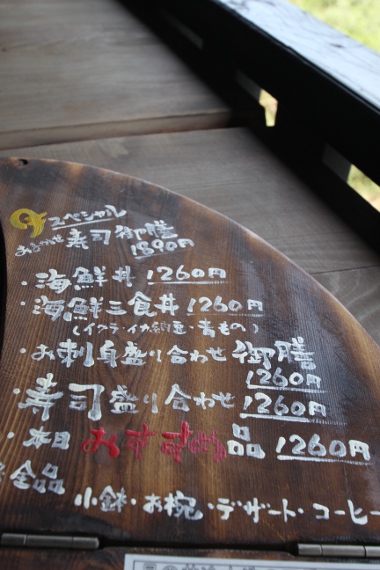 スペシャル
おまかせ寿司御膳
1890円
・海鮮丼 1260円
・海鮮三食丼 1260円
(イクラ・イカ納豆・青もの)
・お刺身盛り合わせ御膳
1260円
・寿司盛り合わせ 1260円
・本日おすすめ品 1260円
全品
小鉢・お椀・デザート・コーヒー